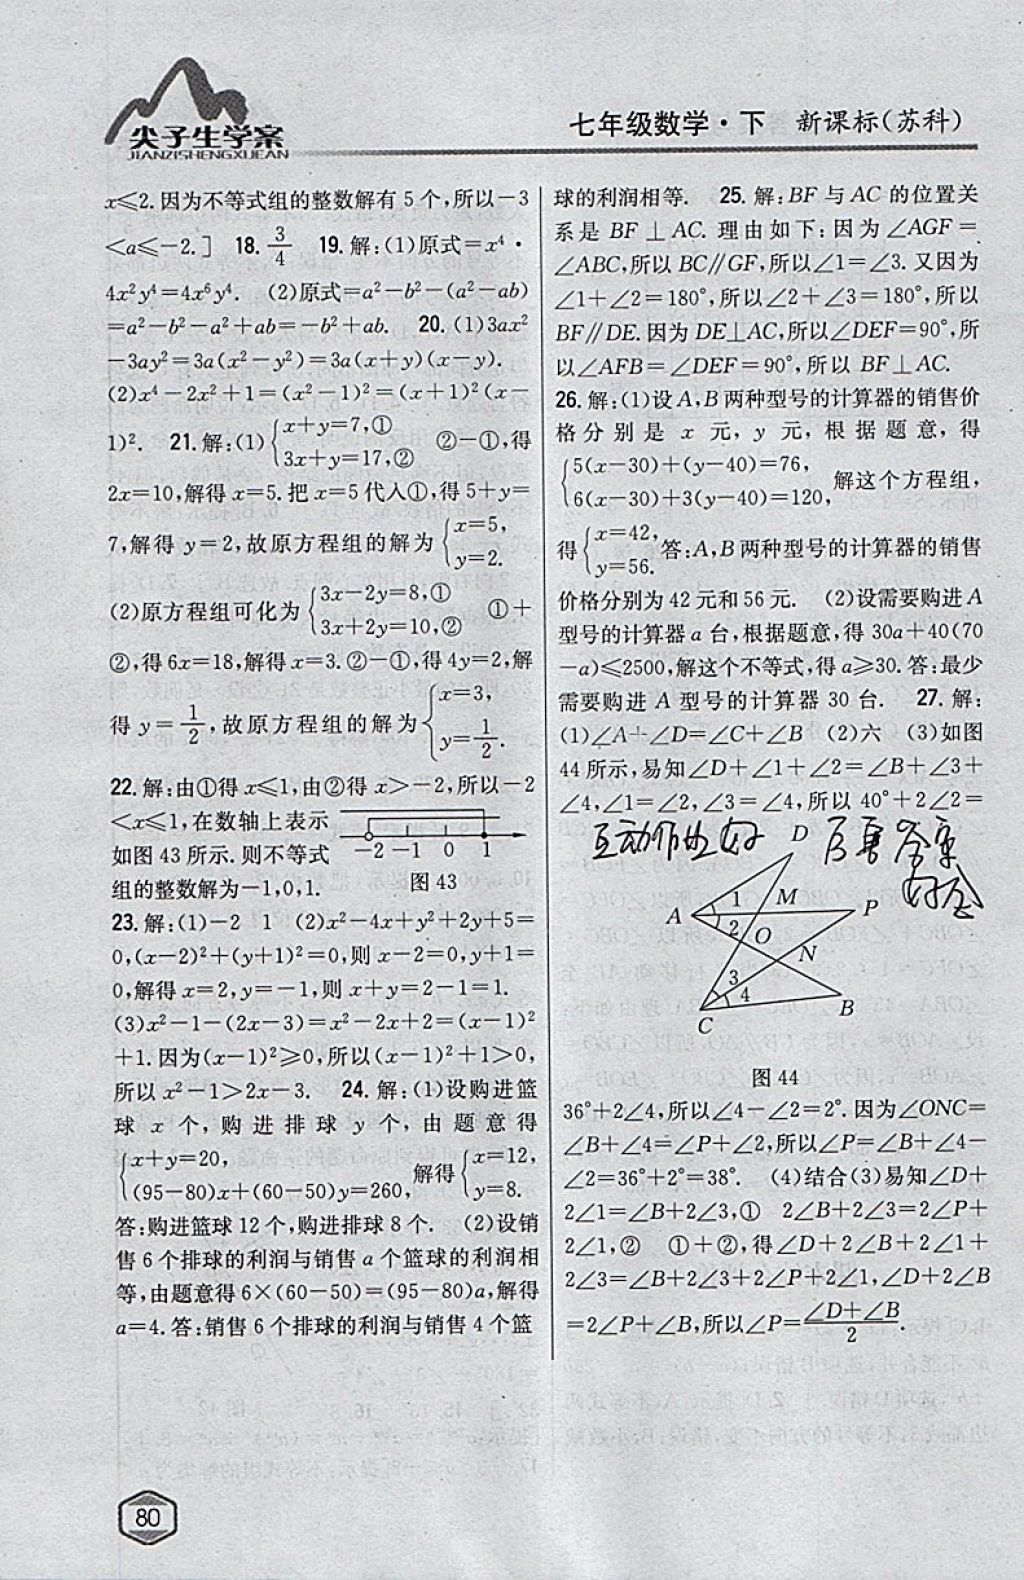 尖子生学案
JIANZISHENGXUEAN
七年级数学·下 新课标(苏科)
x≤2.因为不等式组的整数解有5个,所以-3
<a≤-2.] 18. 3/4 19.解:(1)原式=x⁴·
4x²y⁴=4x⁶y⁴. (2)原式=a²-b²-(a²-ab)
=a²-b²-a²+ab=-b²+ab. 20.(1)3ax²
-3ay²=3a(x²-y²)=3a(x+y)(x-y).
(2)x⁴-2x²+1=(x²-1)²=(x+1)²(x-
1)². 21.解:(1){x+y=7,① 3x+y=17,② ②-①,得
2x=10,解得x=5.把x=5代入①,得5+y=
7,解得y=2,故原方程组的解为{x=5, y=2.
(2)原方程组可化为{3x-2y=8,① 3x+2y=10,② ①+
②,得6x=18,解得x=3.②-①,得4y=2,解
得y=1/2,故原方程组的解为{x=3, y=1/2.
22.解:由①得x≤1,由②得x>-2,所以-2
<x≤1,在数轴上表示
如图43所示.则不等式
组的整数解为-1,0,1.
-2 -1 0 1
图43
23.解:(1)-2 1 (2)x²-4x+y²+2y+5=
0,(x-2)²+(y+1)²=0,则x-2=0,y+1=
0,解得x=2,y=-1,则x+y=2-1=1.
(3)x²-1-(2x-3)=x²-2x+2=(x-1)²
+1.因为(x-1)²≥0,所以(x-1)²+1>0,
所以x²-1>2x-3. 24.解:(1)设购进篮
球x个,购进排球y个,由题意得
{x+y=20, (95-80)x+(60-50)y=260, 解得{x=12, y=8.
答:购进篮球12个,购进排球8个. (2)设销
售6个排球的利润与销售a个篮球的利润相
等,由题意得6×(60-50)=(95-80)a,解得
a=4.答:销售6个排球的利润与销售4个篮
球的利润相等. 25.解:BF与AC的位置关
系是BF⊥AC.理由如下:因为∠AGF=
∠ABC,所以BC∥GF,所以∠1=∠3.又因为
∠1+∠2=180°,所以∠2+∠3=180°,所以
BF∥DE.因为DE⊥AC,所以∠DEF=90°,所
以∠AFB=∠DEF=90°,所以BF⊥AC.
26.解:(1)设A,B两种型号的计算器的销售价
格分别是x元,y元,根据题意,得
{5(x-30)+(y-40)=76, 6(x-30)+3(y-40)=120, 解这个方程组,
得{x=42, y=56. 答:A,B两种型号的计算器的销售
价格分别为42元和56元. (2)设需要购进A
型号的计算器a台,根据题意,得30a+40(70
-a)≤2500,解这个不等式,得a≥30.答:最少
需要购进A型号的计算器30台. 27.解:
(1)∠A+∠D=∠C+∠B (2)六 (3)如图
44所示,易知∠D+∠1+∠2=∠B+∠3+
∠4,∠1=∠2,∠3=∠4,所以40°+2∠2=
D
A 1 M P
2 O
N
3
4 B
C
图44
36°+2∠4,所以∠4-∠2=2°.因为∠ONC=
∠B+∠4=∠P+∠2,所以∠P=∠B+∠4-
∠2=36°+2°=38°. (4)结合(3)易知∠D+
2∠1=∠B+2∠3,① 2∠B+2∠3=2∠P+
2∠1,② ①+②,得∠D+2∠B+2∠1+
2∠3=∠B+2∠3+2∠P+2∠1,∠D+2∠B
=2∠P+∠B,所以∠P=(∠D+∠B)/2.
80